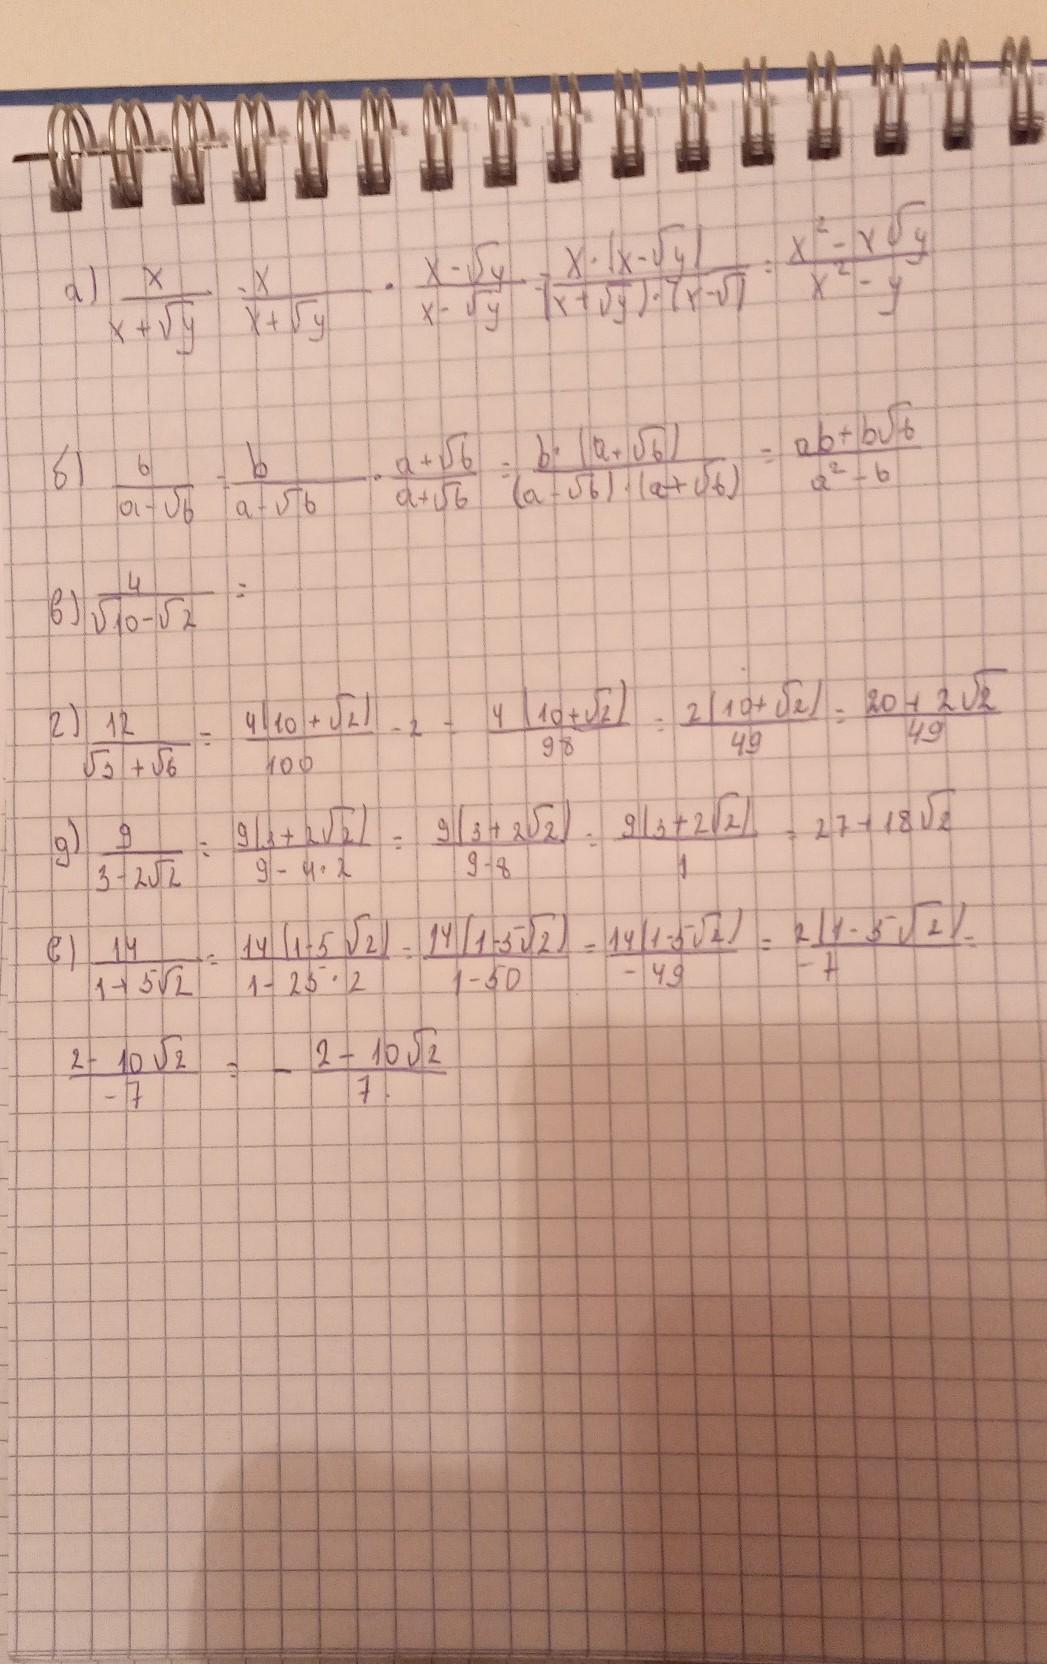 а) x/(x+√y) = x/(x+√y) · (x-√y)/(x-√y) = (x·(x-√y))/((x+√y)·(x-√)) = (x²-x√y)/(x²-y)
б) b/(a-√b) = b/(a-√b) · (a+√b)/(a+√b) = (b·(a+√b))/((a-√b)·(a+√b)) = (ab+b√b)/(a²-b)
в) 4/(√10-√2) =
г) 12/(√3+√6) = 4(10+√2)/100 - 2 = 4(10+√2)/98 = 2(10+√2)/49 = (20+2√2)/49
д) 9/(3-2√2) = 9(3+2√2)/(9-4·2) = 9(3+2√2)/(9-8) = 9(3+2√2)/1 = 27+18√2
е) 14/(1+5√2) = 14(1-5√2)/(1-25·2) = 14(1-5√2)/(1-50) = 14(1-5√2)/(-49) = 2(1-5√2)/(-7) =
(2-10√2)/(-7) = -(2-10√2)/7.